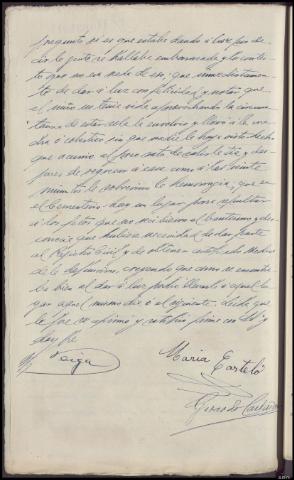 pregunto si es que estaba dando á luz, por de-
cir la gente se hallaba embarazada y le contes-
tó que no era nada de eso, que inmediatamen-
te de dar á luz con felicidad y notar que
el niño no tenia vida aprovechando la circuns-
tancia de estar sola lo envolvió y llevó á la
á enterrar sin que nadie la haya visto
que ocurrió el poco rato de
pues de regresar á casa como á los veinte
minutos le sobrevino la hemorragia, que en
el Cementerio hay un lugar para sepultar
á los fetos que no recibieron el bautismo y des-
conocia que hubiera necesidad de dar parte
al Registro Civil y de obtener certificado Medico
de la defunción, creyendo que como se encontra-
ba bien al dar á luz podia llevarlo á aquel lu-
gar aquel mismo dia ó al siguiente. Leida que
le fue se afirmó y ratificó, firma con S.Sª y
doy fe
Maria Casteló
Gerardo